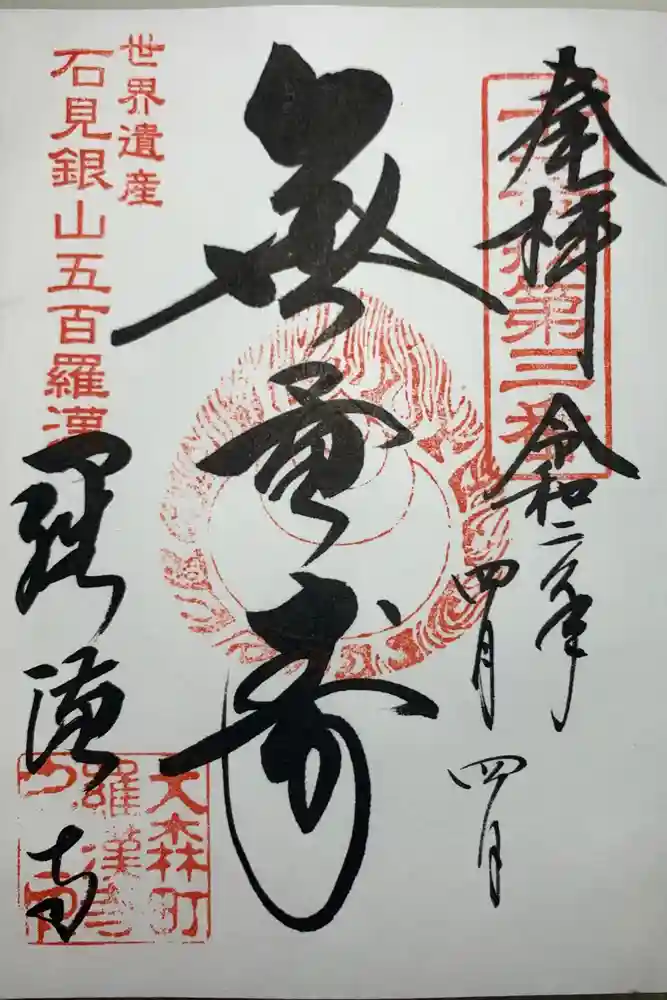 奉拝
第三番
令和二年
四月四日
無量寿
世界遺産
石見銀山五百羅漢
羅漢寺
大森町
羅漢寺